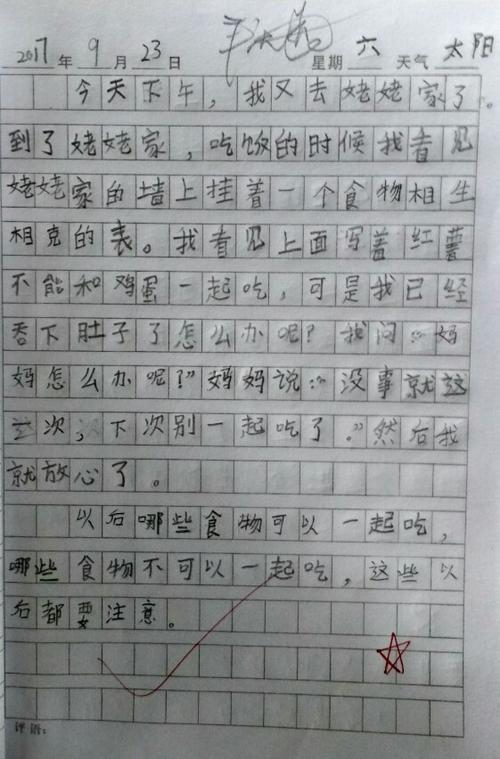 2017年9月23日 星期六 天气太阳
今天下午，我又去姥姥家了。
到了姥姥家，吃饭的时候我看见
姥姥家的墙上挂着一个食物相生
相克的表。我看见上面写着红薯
不能和鸡蛋一起吃，可是我已经
吞下肚子了怎么办呢？我问：“妈
妈怎么办呢？”妈妈说：“没事就这
一次，下次别一起吃了。”然后我
就放心了。
以后哪些食物可以一起吃，
哪些食物不可以一起吃，这些以
后都要注意。
评语：